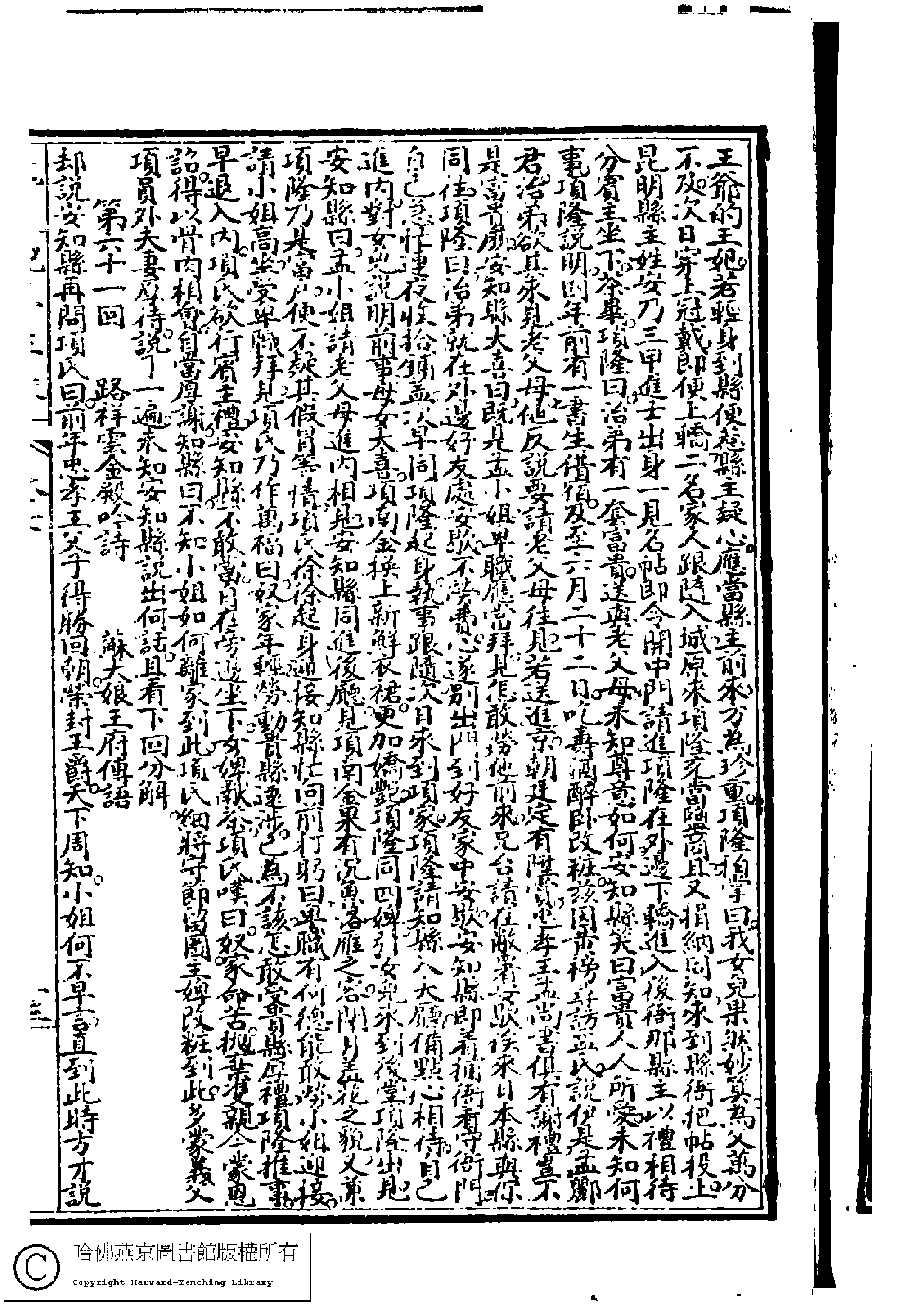 王爺的王妃若輕身到縣便惹縣主疑心應當縣主前來方為珍重項隆拍掌曰我女兒果然妙算為父萬分
不及次日穿上冠戴即便上轎二名家人跟隨入城原來項隆充當鹽商且又捐納同知來到縣衙把帖投上
昆明縣主姓安乃三甲進士出身一見名帖即令開中門請進項隆在外邊下轎進入後衙那縣主以禮相待
分賓主坐下茶畢項隆曰治弟有一套富貴送與老父母未知尊意如何安知縣笑曰富貴人人所愛未知何
事項隆說明四年前有一書生借宿及至六月二十二日吃壽酒醉臥改粧該因榜訪孟氏說伊是孟麗
君治弟欲其來見老父母他反說要請老父母往見若送進京朝廷定有陞賞忠孝王孟尚書俱有謝禮豈不
是富貴麼安知縣大喜曰既是孟小姐卑職應當拜見怎敢勞他前來兄台請在敝署安歇俟來日本縣與你
同往項隆曰治弟就在外邊好友處安歇不勞費心遂別出門到好友家中安歇安知縣即著補衙看守衙門
自己急忙連夜收拾鋪蓋次早同項隆起身執事跟隨次日來到項家項隆請知縣入大廳備點心相待自己
進內對女兒說明前事母女大喜項南金換上新鮮衣裙更加嬌艷項隆同四婢引女兒來到後堂項隆出見
安知縣曰孟小姐請老父母進內相見安知縣同進後廳見項南金果有沉魚落雁之容閉月羞花之貌又兼
項隆乃是富戶便不疑其假冒等情項氏徐徐起身迎接知縣忙向前打躬曰卑職有何德能敢勞小姐迎接
請小姐高坐受卑職拜見項氏乃作萬福曰奴家年輕勞動貴縣遠涉已為不該怎敢受貴縣厚禮項隆推事
早退入內項氏欲行賓主禮安知縣不敢當自在旁邊坐下女婢獻茶項氏嘆曰奴家命苦拋棄雙親今蒙恩
詔得以骨肉相會自當厚謝知縣曰不知小姐如何離家到此項氏細將守節留圖主婢改粧到此多蒙義父
項員外夫妻厚待說了一遍未知安知縣說出何話且看下回分解
第六十一回　路祥雲金殿吟詩　蘇大娘王府傳語
却說安知縣再問項氏曰前年忠孝王父子得勝回朝榮封王爵天下周知小姐何不早言直到此時方才說
哈佛燕京圖書館版權所有
Copyright Harvard-Yenching Library